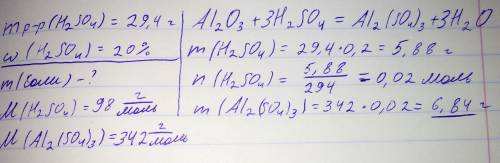 m р-р (H₂SO₄) = 29,4 г
w (H₂SO₄) = 20%
m (соли) - ?
M (H₂SO₄) = 98 г/моль
M (Al₂(SO₄)₃) = 342 г/моль
Al₂O₃ + 3H₂SO₄ = Al₂(SO₄)₃ + 3H₂O
m (H₂SO₄) = 29,4 · 0,2 = 5,88 г
n (H₂SO₄) = 5,88/294 = 0,02 моль
m (Al₂(SO₄)₃) = 342 · 0,02 = 6,84 г